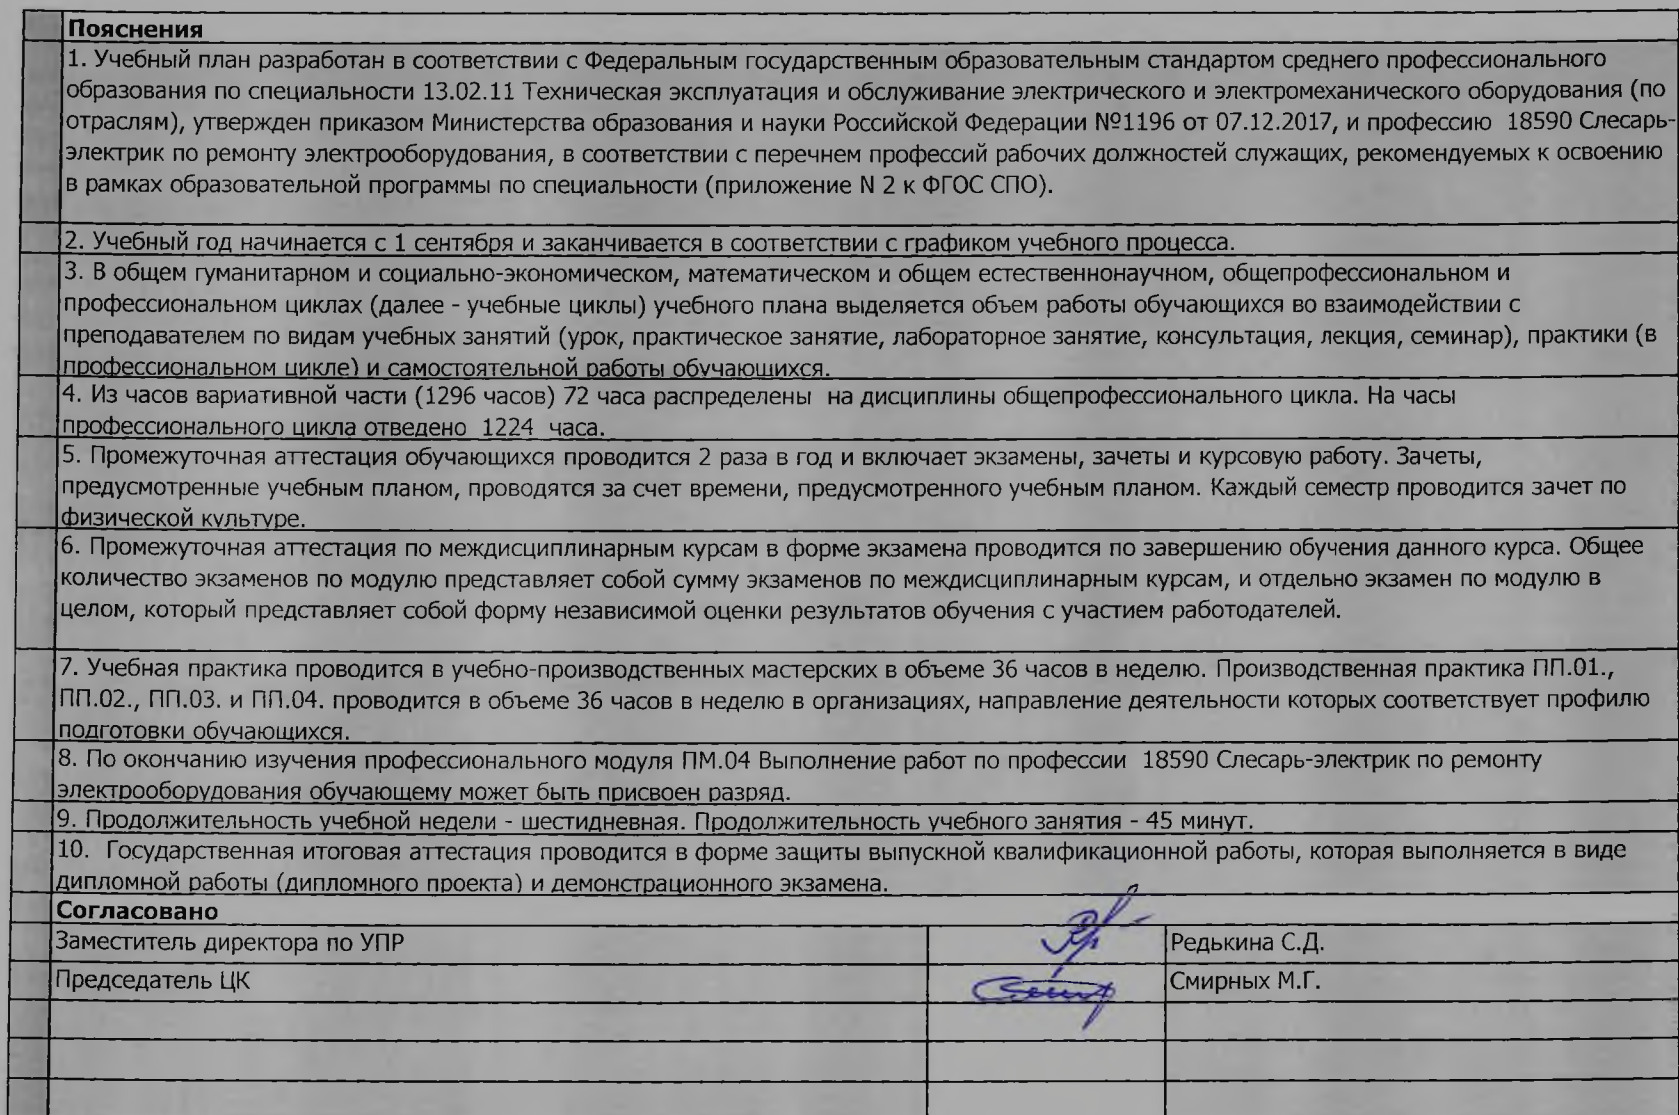 Пояснения
1. Учебный план разработан в соответствии с Федеральным государственным образовательным стандартом среднего профессионального
образования по специальности 13.02.11 Техническая эксплуатация и обслуживание электрического и электромеханического оборудования (по
отраслям), утвержден приказом Министерства образования и науки Российской Федерации №1196 от 07.12.2017, и профессию 18590 Слесарь-
электрик по ремонту электрооборудования, в соответствии с перечнем профессий рабочих должностей служащих, рекомендуемых к освоению
в рамках образовательной программы по специальности (приложение N 2 к ФГОС СПО).
2. Учебный год начинается с 1 сентября и заканчивается в соответствии с графиком учебного процесса.
3. В общем гуманитарном и социально-экономическом, математическом и общем естественнонаучном, общепрофессиональном и
профессиональном циклах (далее - учебные циклы) учебного плана выделяется объем работы обучающихся во взаимодействии с
преподавателем по видам учебных занятий (урок, практическое занятие, лабораторное занятие, консультация, лекция, семинар), практики (в
профессиональном цикле) и самостоятельной работы обучающихся.
4. Из часов вариативной части (1296 часов) 72 часа распределены на дисциплины общепрофессионального цикла. На часы
профессионального цикла отведено 1224 часа.
5. Промежуточная аттестация обучающихся проводится 2 раза в год и включает экзамены, зачеты и курсовую работу. Зачеты,
предусмотренные учебным планом, проводятся за счет времени, предусмотренного учебным планом. Каждый семестр проводится зачет по
физической культуре.
6. Промежуточная аттестация по междисциплинарным курсам в форме экзамена проводится по завершению обучения данного курса. Общее
количество экзаменов по модулю представляет собой сумму экзаменов по междисциплинарным курсам, и отдельно экзамен по модулю в
целом, который представляет собой форму независимой оценки результатов обучения с участием работодателей.
7. Учебная практика проводится в учебно-производственных мастерских в объеме 36 часов в неделю. Производственная практика ПП.01.,
ПП.02., ПП.03. и ПП.04. проводится в объеме 36 часов в неделю в организациях, направление деятельности которых соответствует профилю
подготовки обучающихся.
8. По окончанию изучения профессионального модуля ПМ.04 Выполнение работ по профессии 18590 Слесарь-электрик по ремонту
электрооборудования обучающему может быть присвоен разряд.
9. Продолжительность учебной недели - шестидневная. Продолжительность учебного занятия - 45 минут.
10. Государственная итоговая аттестация проводится в форме защиты выпускной квалификационной работы, которая выполняется в виде
дипломной работы (дипломного проекта) и демонстрационного экзамена.
Согласовано
Заместитель директора по УПР Редькина С.Д.
Председатель ЦК Смирных М.Г.